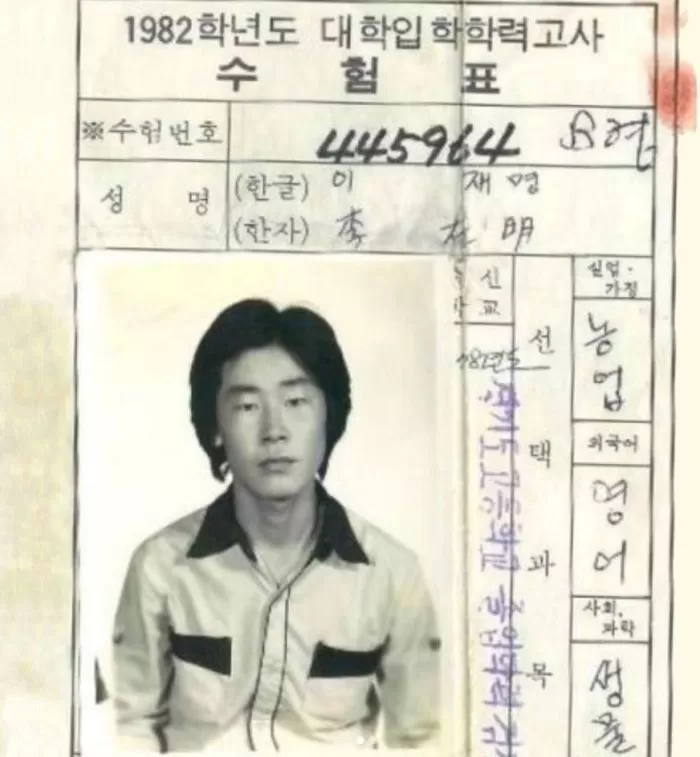 1982학년도 대학입학학력고사
수험표
※수험번호 445964
성명 (한글) 이 재 명
(한자) 李 在 明
신
교
선택과목
실업·
가정
농업
외국어
영어
사회,
과학
생물
'82년도
경기도 고등학교 졸업학력 검